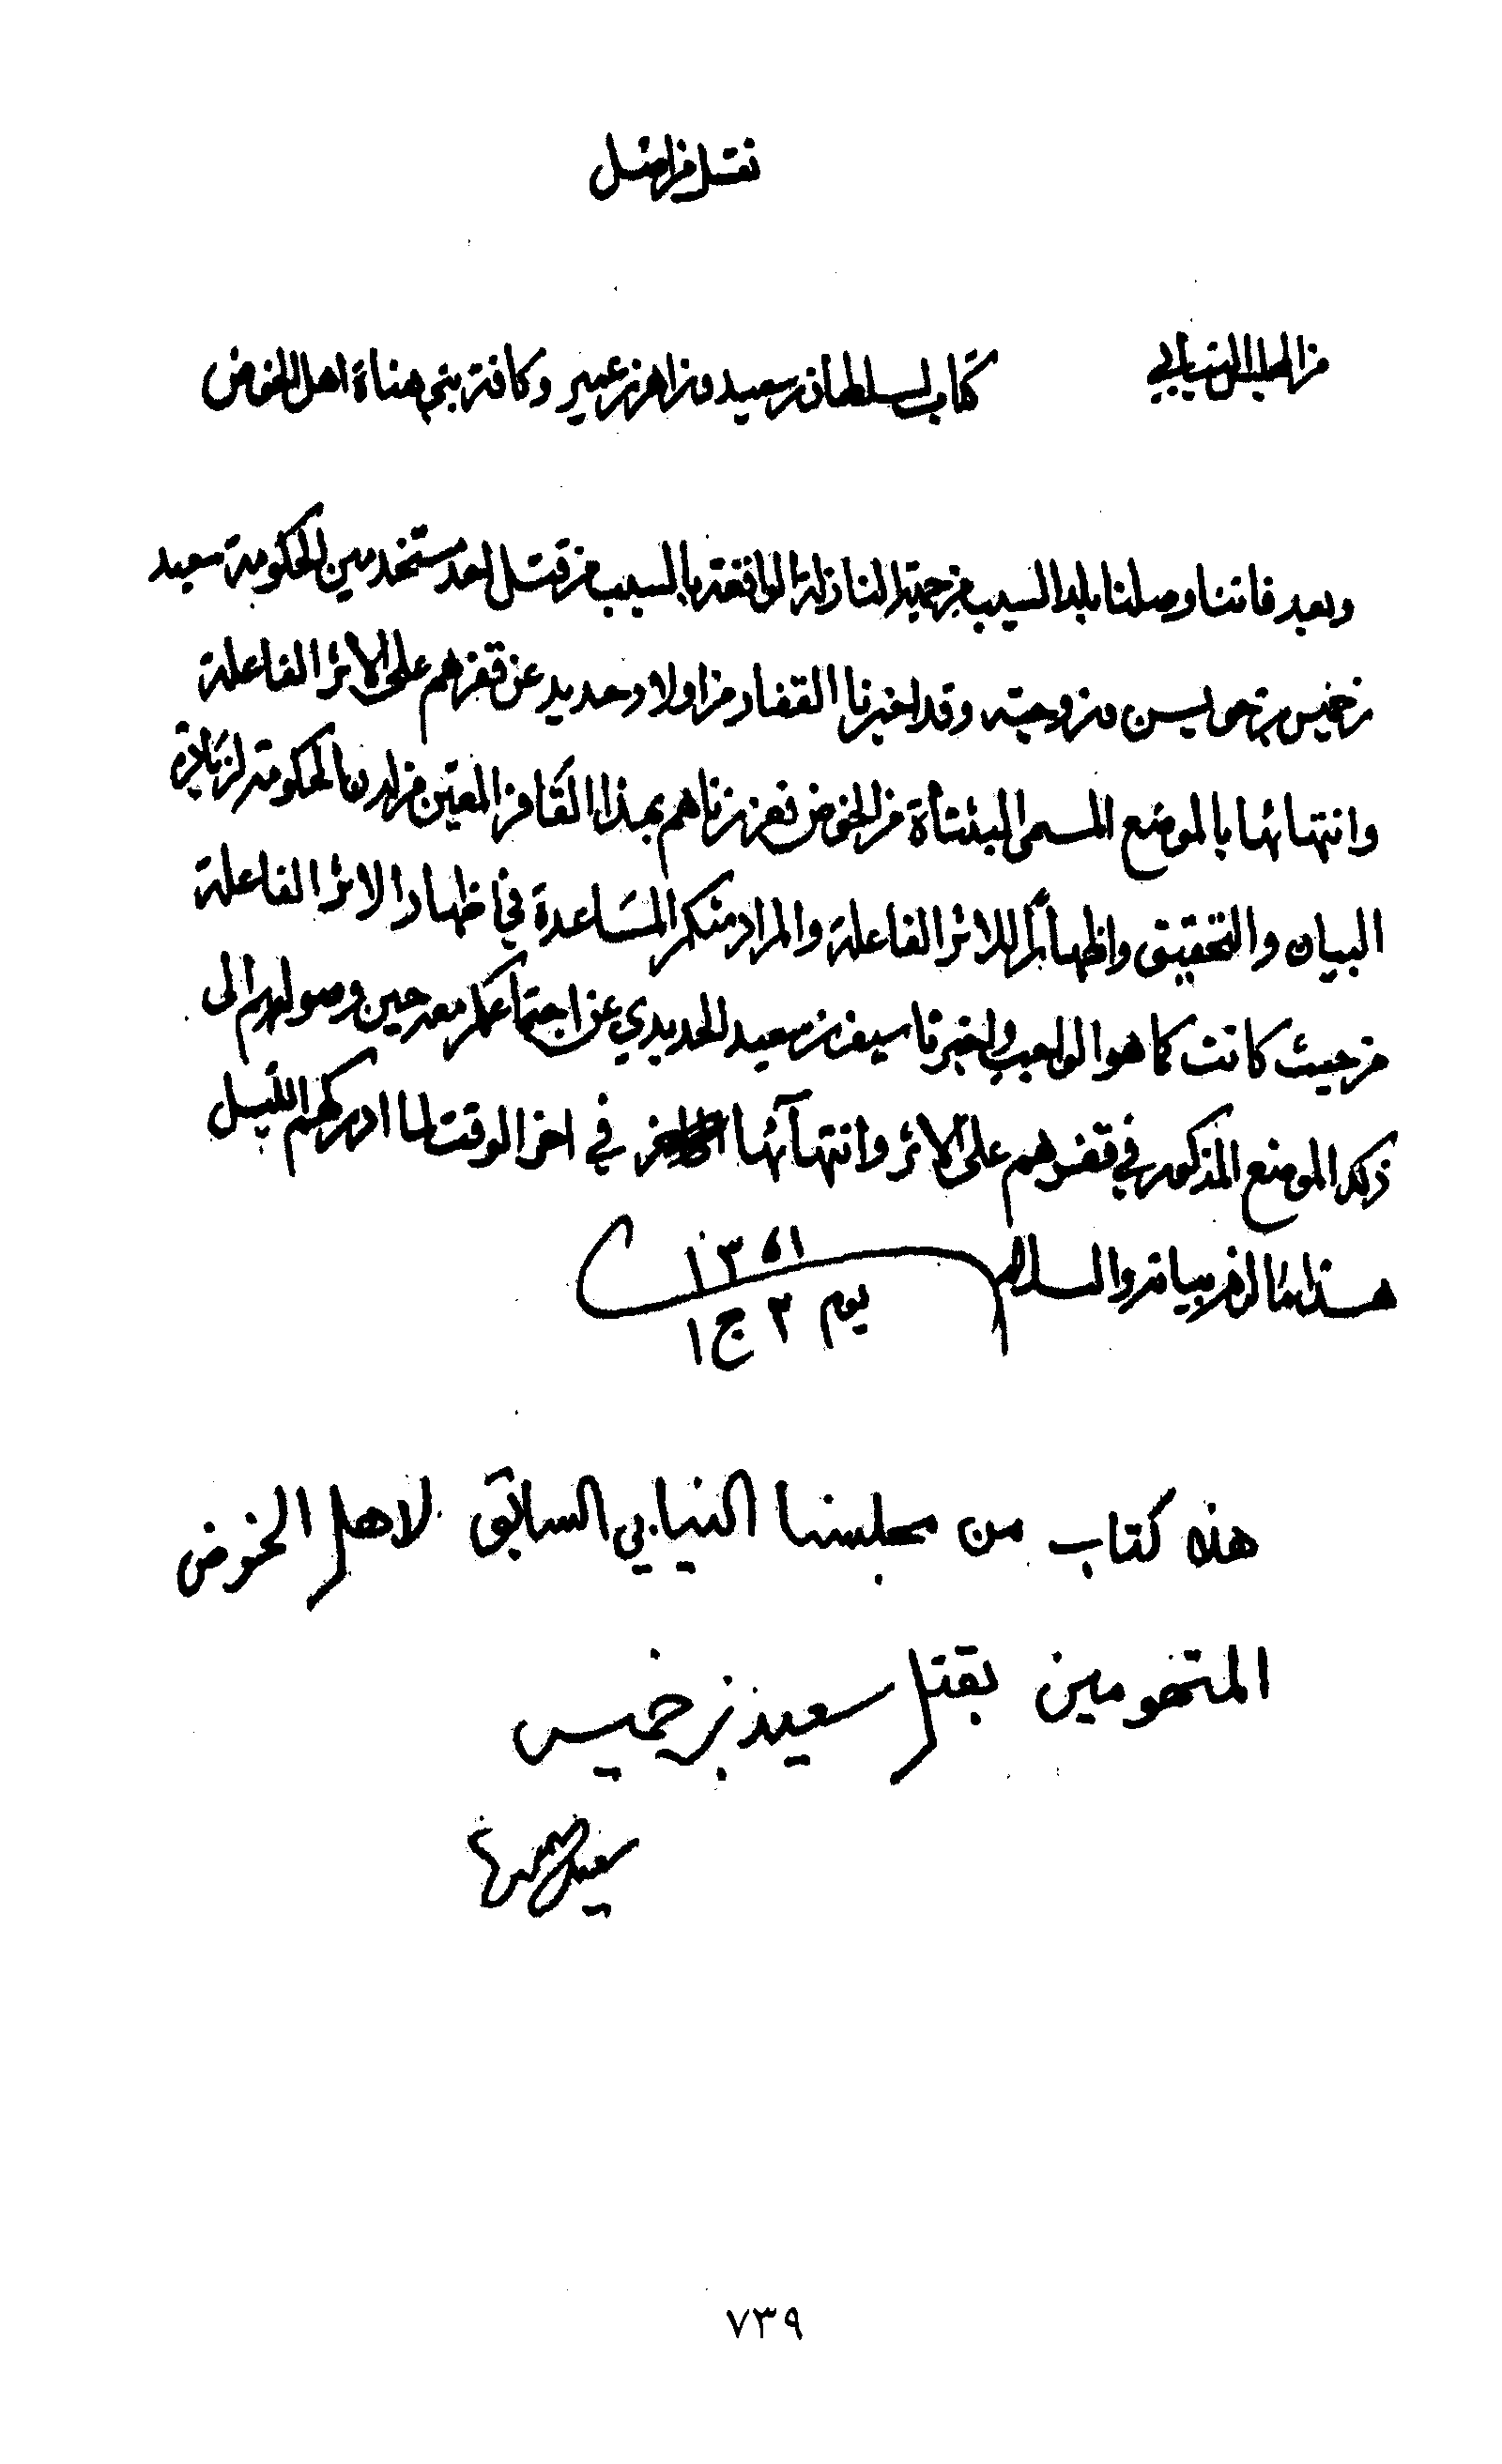 نقل من اصل
من المجلس النيابي
كتاب السلطان سعيد ونزاهر بن عمير وكافة بني هناة اهل الخوض
وبعد فاننا وصلنا بلد السيب من جهة النازلة الواقعة بالسيب من قتل احد مستخدمين الحكومة سعيد
بن خميس وزوجته وقد اخبرنا القفار من اولاد حديد عن قفرهم على الاثر الفاعلة
وانتهائها بالموضع المسمى من الخوض فعززناهم بهذا القافر المعين من لدن الحكومة لزيادة
البيان والتحقيق واظهاراً للاثر الفاعلة والمراد منكم المساعدة في اظهار الاثر الفاعلة
من حيث كانت كما هو الواجب واخبرنا سيف بن سعيد الحديدي عن اجتماعكم معه حين وصولهم الى
ذلك الموضع المذكور في قفرهم على الاثر وانتهآئها في اخر الوقت لما ادركهم الليل
هذا ما لزم بيانه والسلام
١٣٥١
يوم ٣ ج ١
هذه كتاب من مجلسنا النيابي السابق لاهل الخوض
المتهومين بقتل سعيد بن خميس
سعيد
٧٣٩